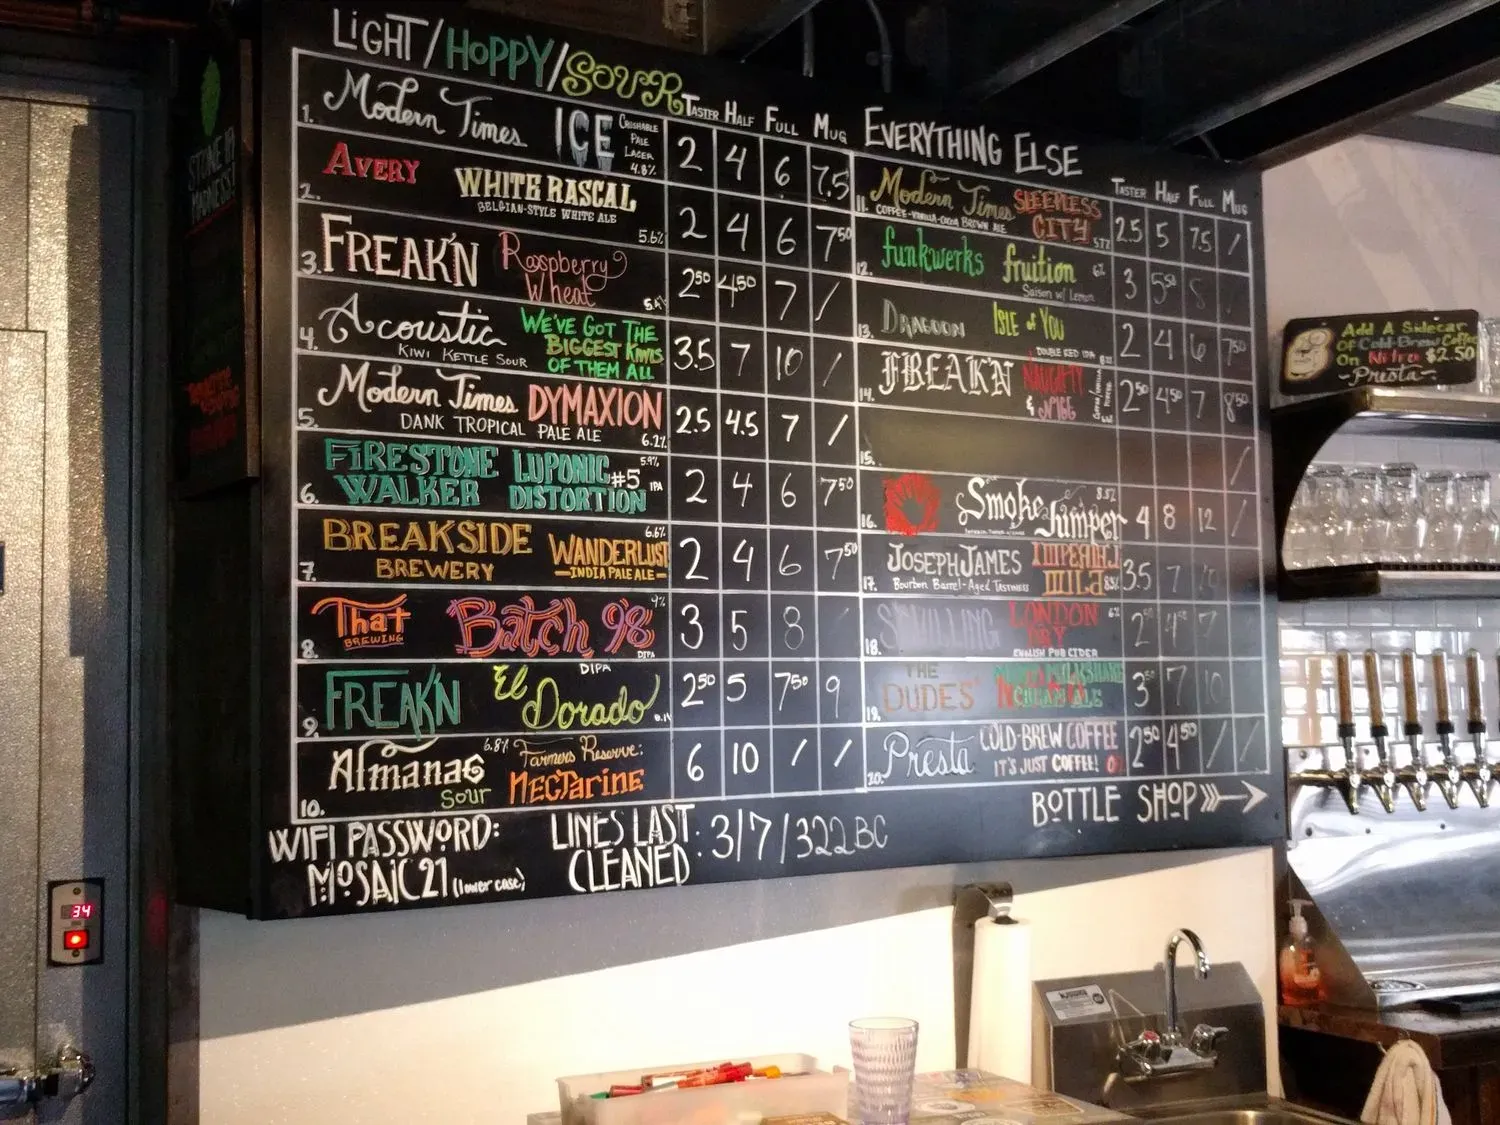 LIGHT/HOPPY/SOUR
TASTER HALF FULL MUG
1. Modern Times ICE CRUSHABLE PALE LAGER 4.8% 2 4 6 7.5
2. AVERY WHITE RASCAL BELGIAN-STYLE WHITE ALE 5.6% 2 4 6 7.50
3. FREAK'N Raspberry Wheat 2.50 4.50 7 /
4. Acoustic KIWI KETTLE SOUR WE'VE GOT THE BIGGEST KIWIS OF THEM ALL 3.5 7 10 /
5. Modern Times DYMAXION DANK TROPICAL PALE ALE 6.2% 2.5 4.5 7 /
6. FIRESTONE WALKER LUPONIC DISTORTION #5 5.9% IPA 2 4 6 7.50
7. BREAKSIDE BREWERY WANDERLUST INDIA PALE ALE 6.6% 2 4 6 7.50
8. That BREWING Batch 98 9% DIPA 3 5 8
9. FREAK'N El Dorado DIPA 2.50 5 7.50 9
10. Almanac Sour 6.8% Farmers Reserve: NECTARINE 6 10 / /
EVERYTHING ELSE
TASTER HALF FULL MUG
11. Modern Times SLEEPLESS CITY COFFEE-VANILLA-COCOA BROWN ALE 2.5 5 7.5 /
12. funkwerks fruition 6% Saison w/ Lemon 3 5.50 8
13. DRAGOON ISLE of YOU DOUBLE RED IPA 2 4 6 7.50
14. FREAK'N NAUGHTY & 2.50 4.50 7 8.50
15. /
16. Smoke Jumper 8.5% 4 8 12 /
17. JOSEPH JAMES IMPERIAL Bourbon Barrel-Aged TASTINESS 3.5 7
18. LONDON DRY 6% ENGLISH PUB CIDER 7
19. THE DUDES' 7 10
20. Presta COLD-BREW COFFEE IT'S JUST COFFEE! 2.50 4.50 / /
BOTTLE SHOP
WIFI PASSWORD: MOSAIC21 (lower case)
LINES LAST CLEANED: 3/7/322BC
Add A Sidecar
Of Cold-Brew Coffee
On Nitro $2.50
-Presta-
34